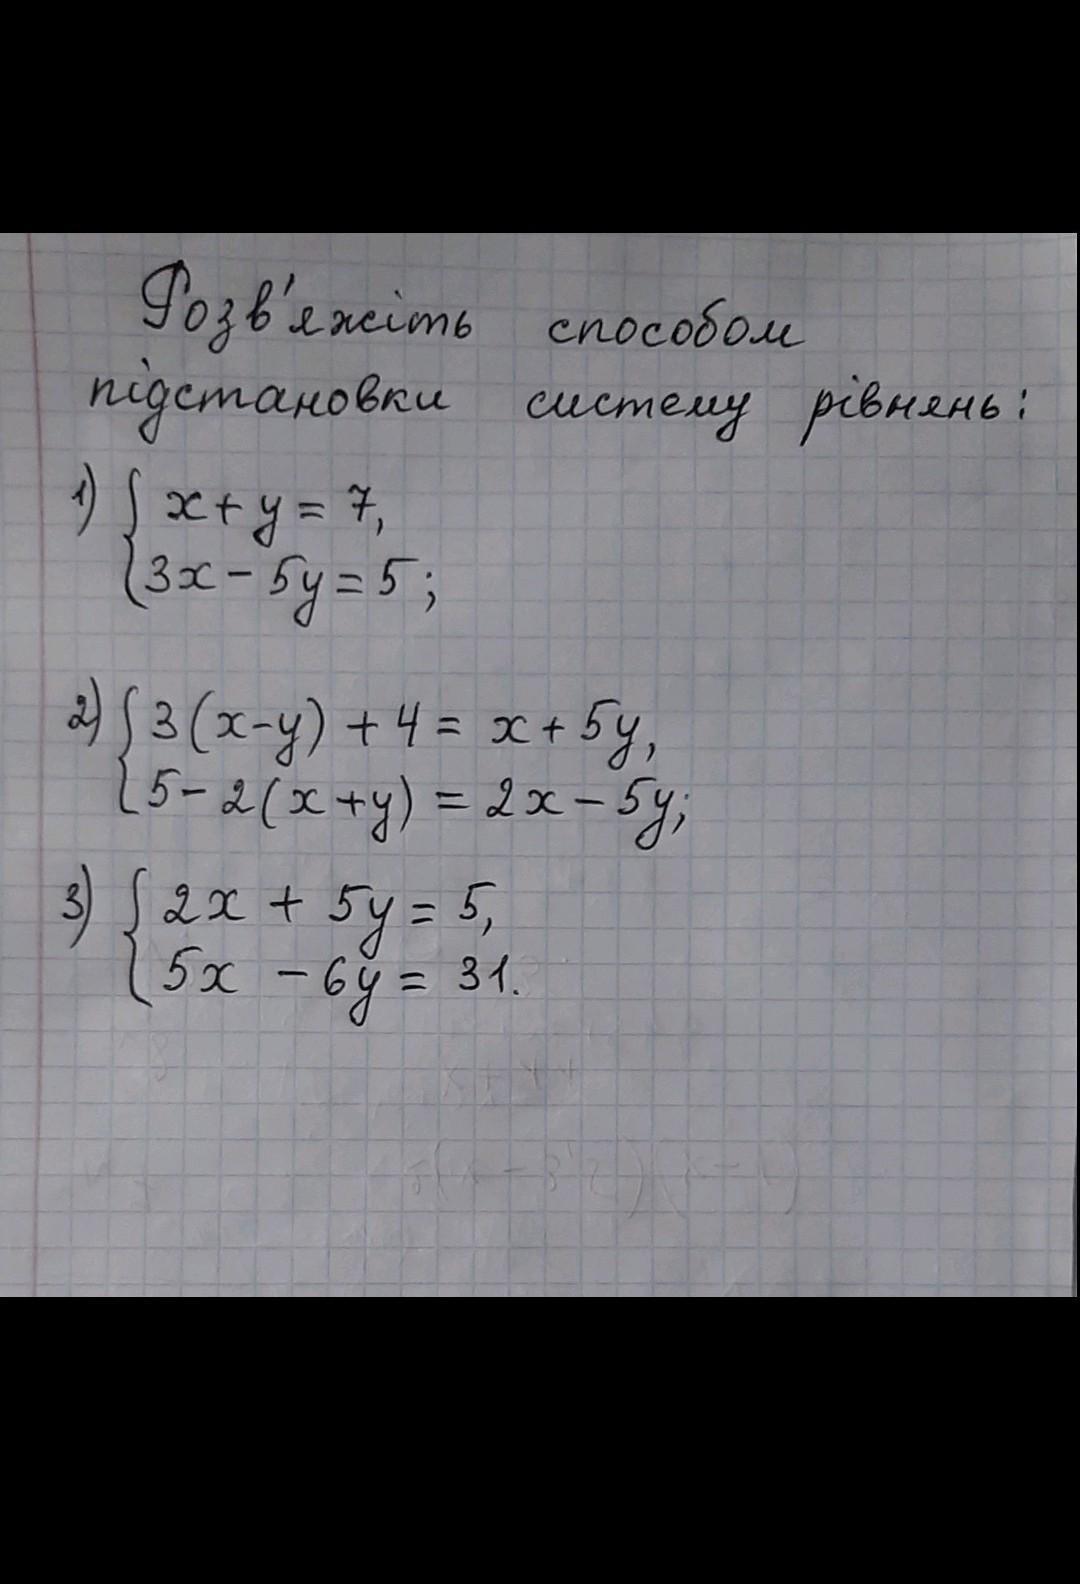 Розв'яжіть способом
підстановки систему рівнянь:
1) { x + y = 7,
3x - 5y = 5;
2) { 3(x-y) + 4 = x + 5y,
5 - 2(x+y) = 2x - 5y;
3) { 2x + 5y = 5,
5x - 6y = 31.